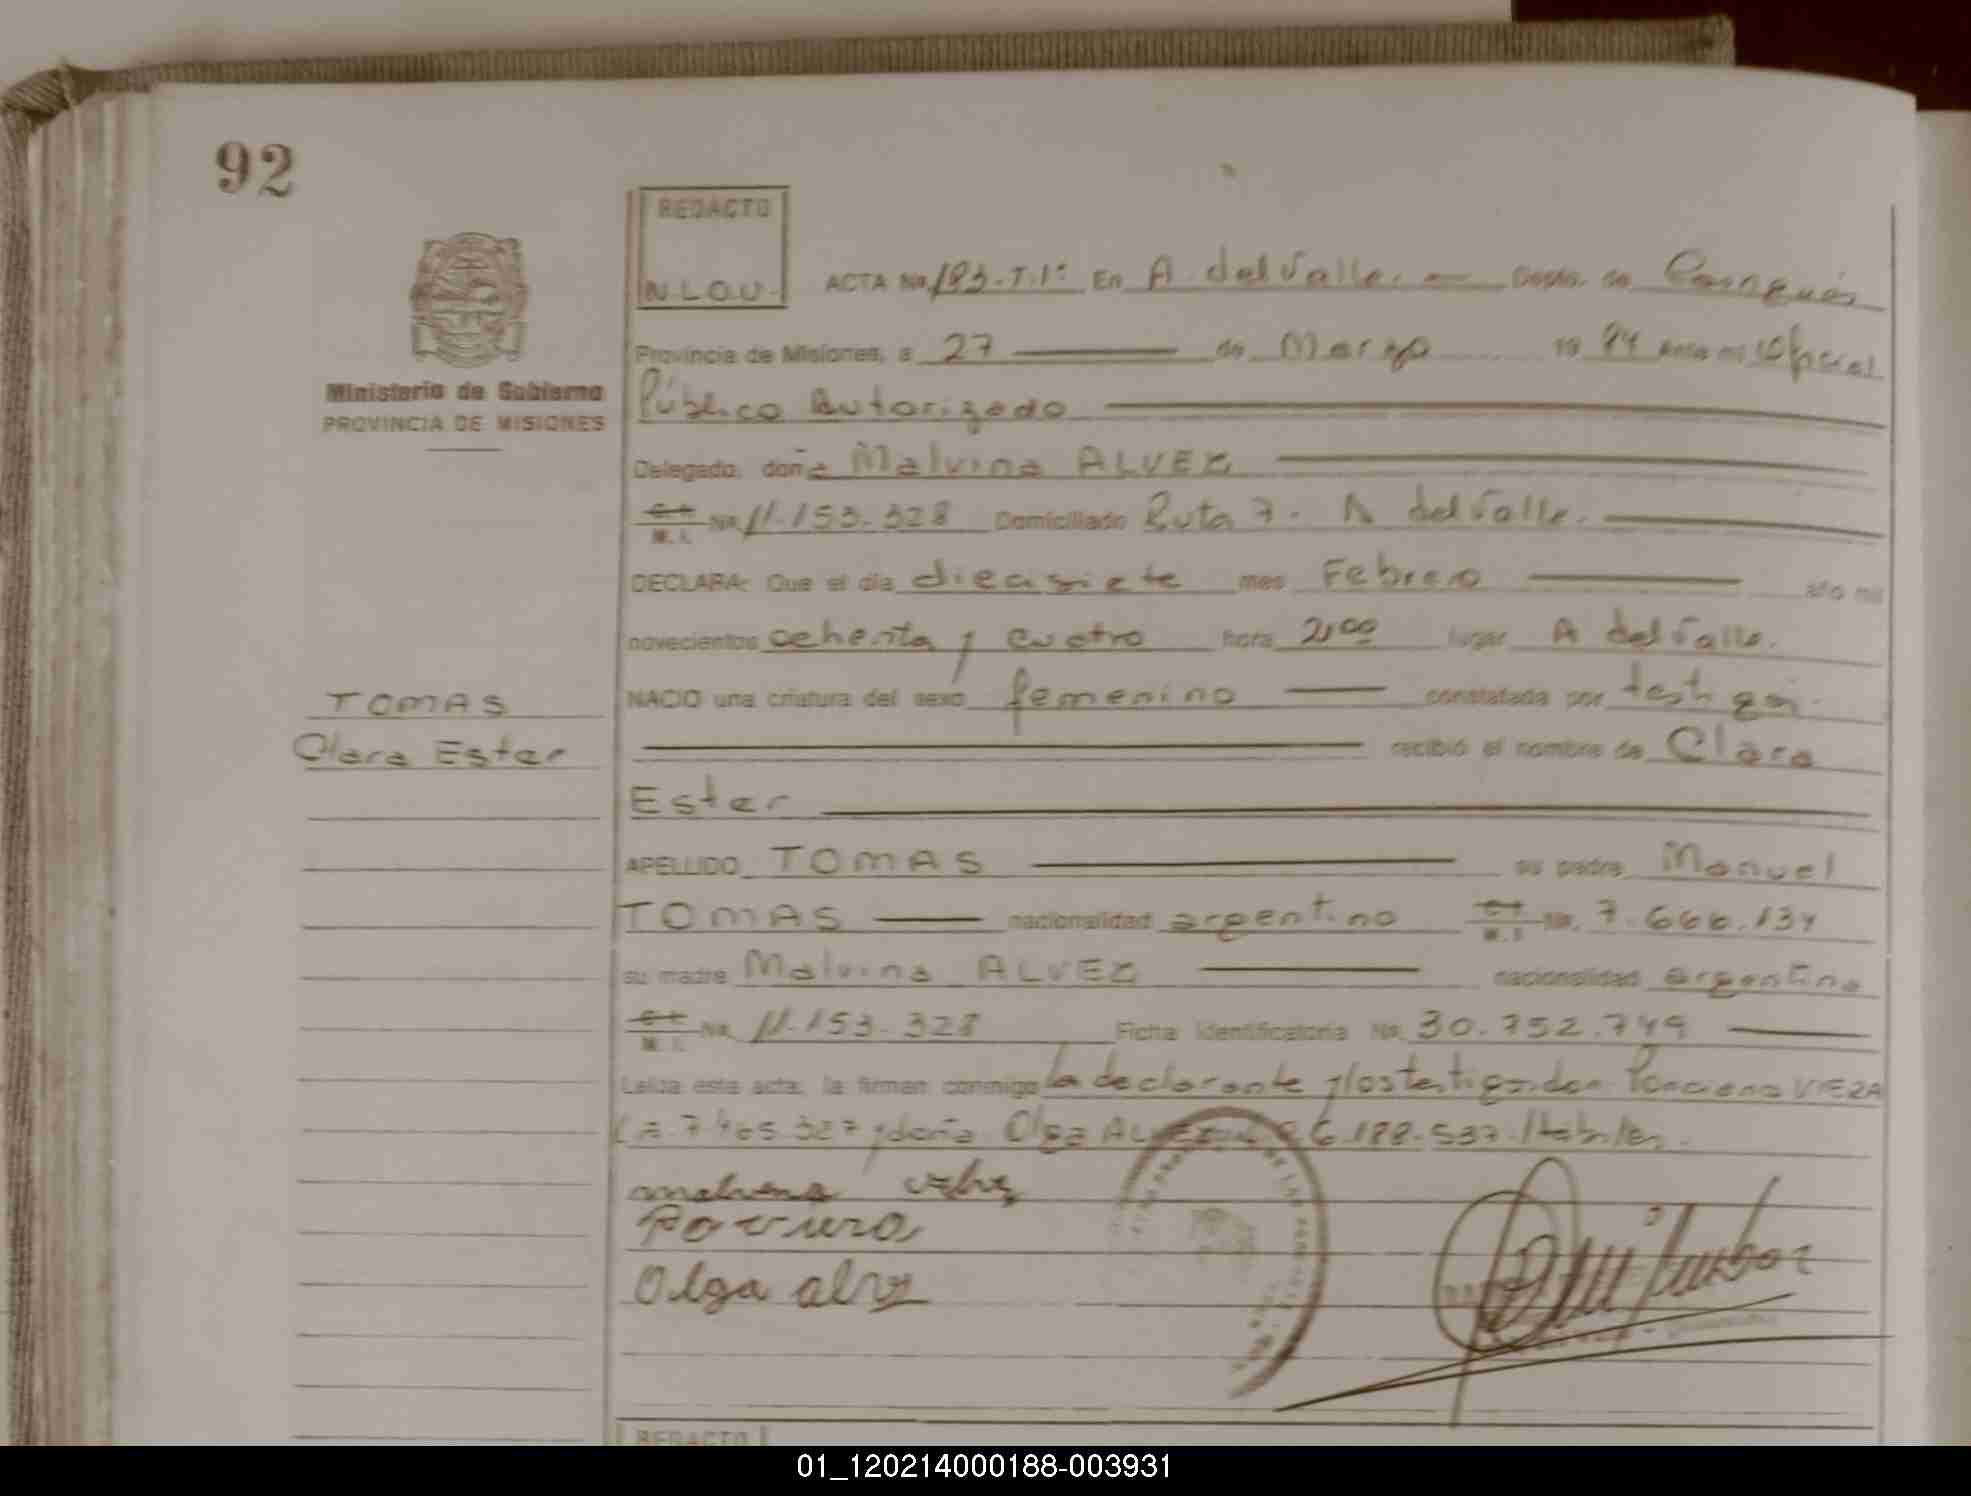 92
REDACTO
N.L.O.U.
ACTA No. 183-T.1º En A. del Valle. — Depto. de Cainguás
Provincia de Misiones, a 27 — de Marzo 19 84 ante mi Oficial
Ministerio de Gobierno
PROVINCIA DE MISIONES
Público Autorizado
Delegado, doña Malvina ALVEZ
C.I. M.I. No. 11.153.328 Domiciliado Ruta 7. A del Valle.
DECLARA: Que el día diecisiete mes Febrero año mil
novecientos ochenta y cuatro hora 21,00 lugar A del Valle.
TOMAS
Clara Ester
NACIO una criatura del sexo femenino — constatada por testigos.
recibió el nombre de Clara
Ester
APELLIDO TOMAS — su padre Manuel
TOMAS — nacionalidad argentino C.I. M.I. No. 7.666.134
su madre Malvina ALVEZ — nacionalidad argentina
C.I. M.I. No. 11.153.328 Ficha Identificatoria No. 30.752.749
Leída esta acta, la firman conmigo la declarante y los testigos don Ponciano VIERA
7.465.327 y doña Olga ALVEZ 6.188.537. Hábiles.
malvina alvez
Po viera
Olga alvez
REDACTO
01_120214000188-003931